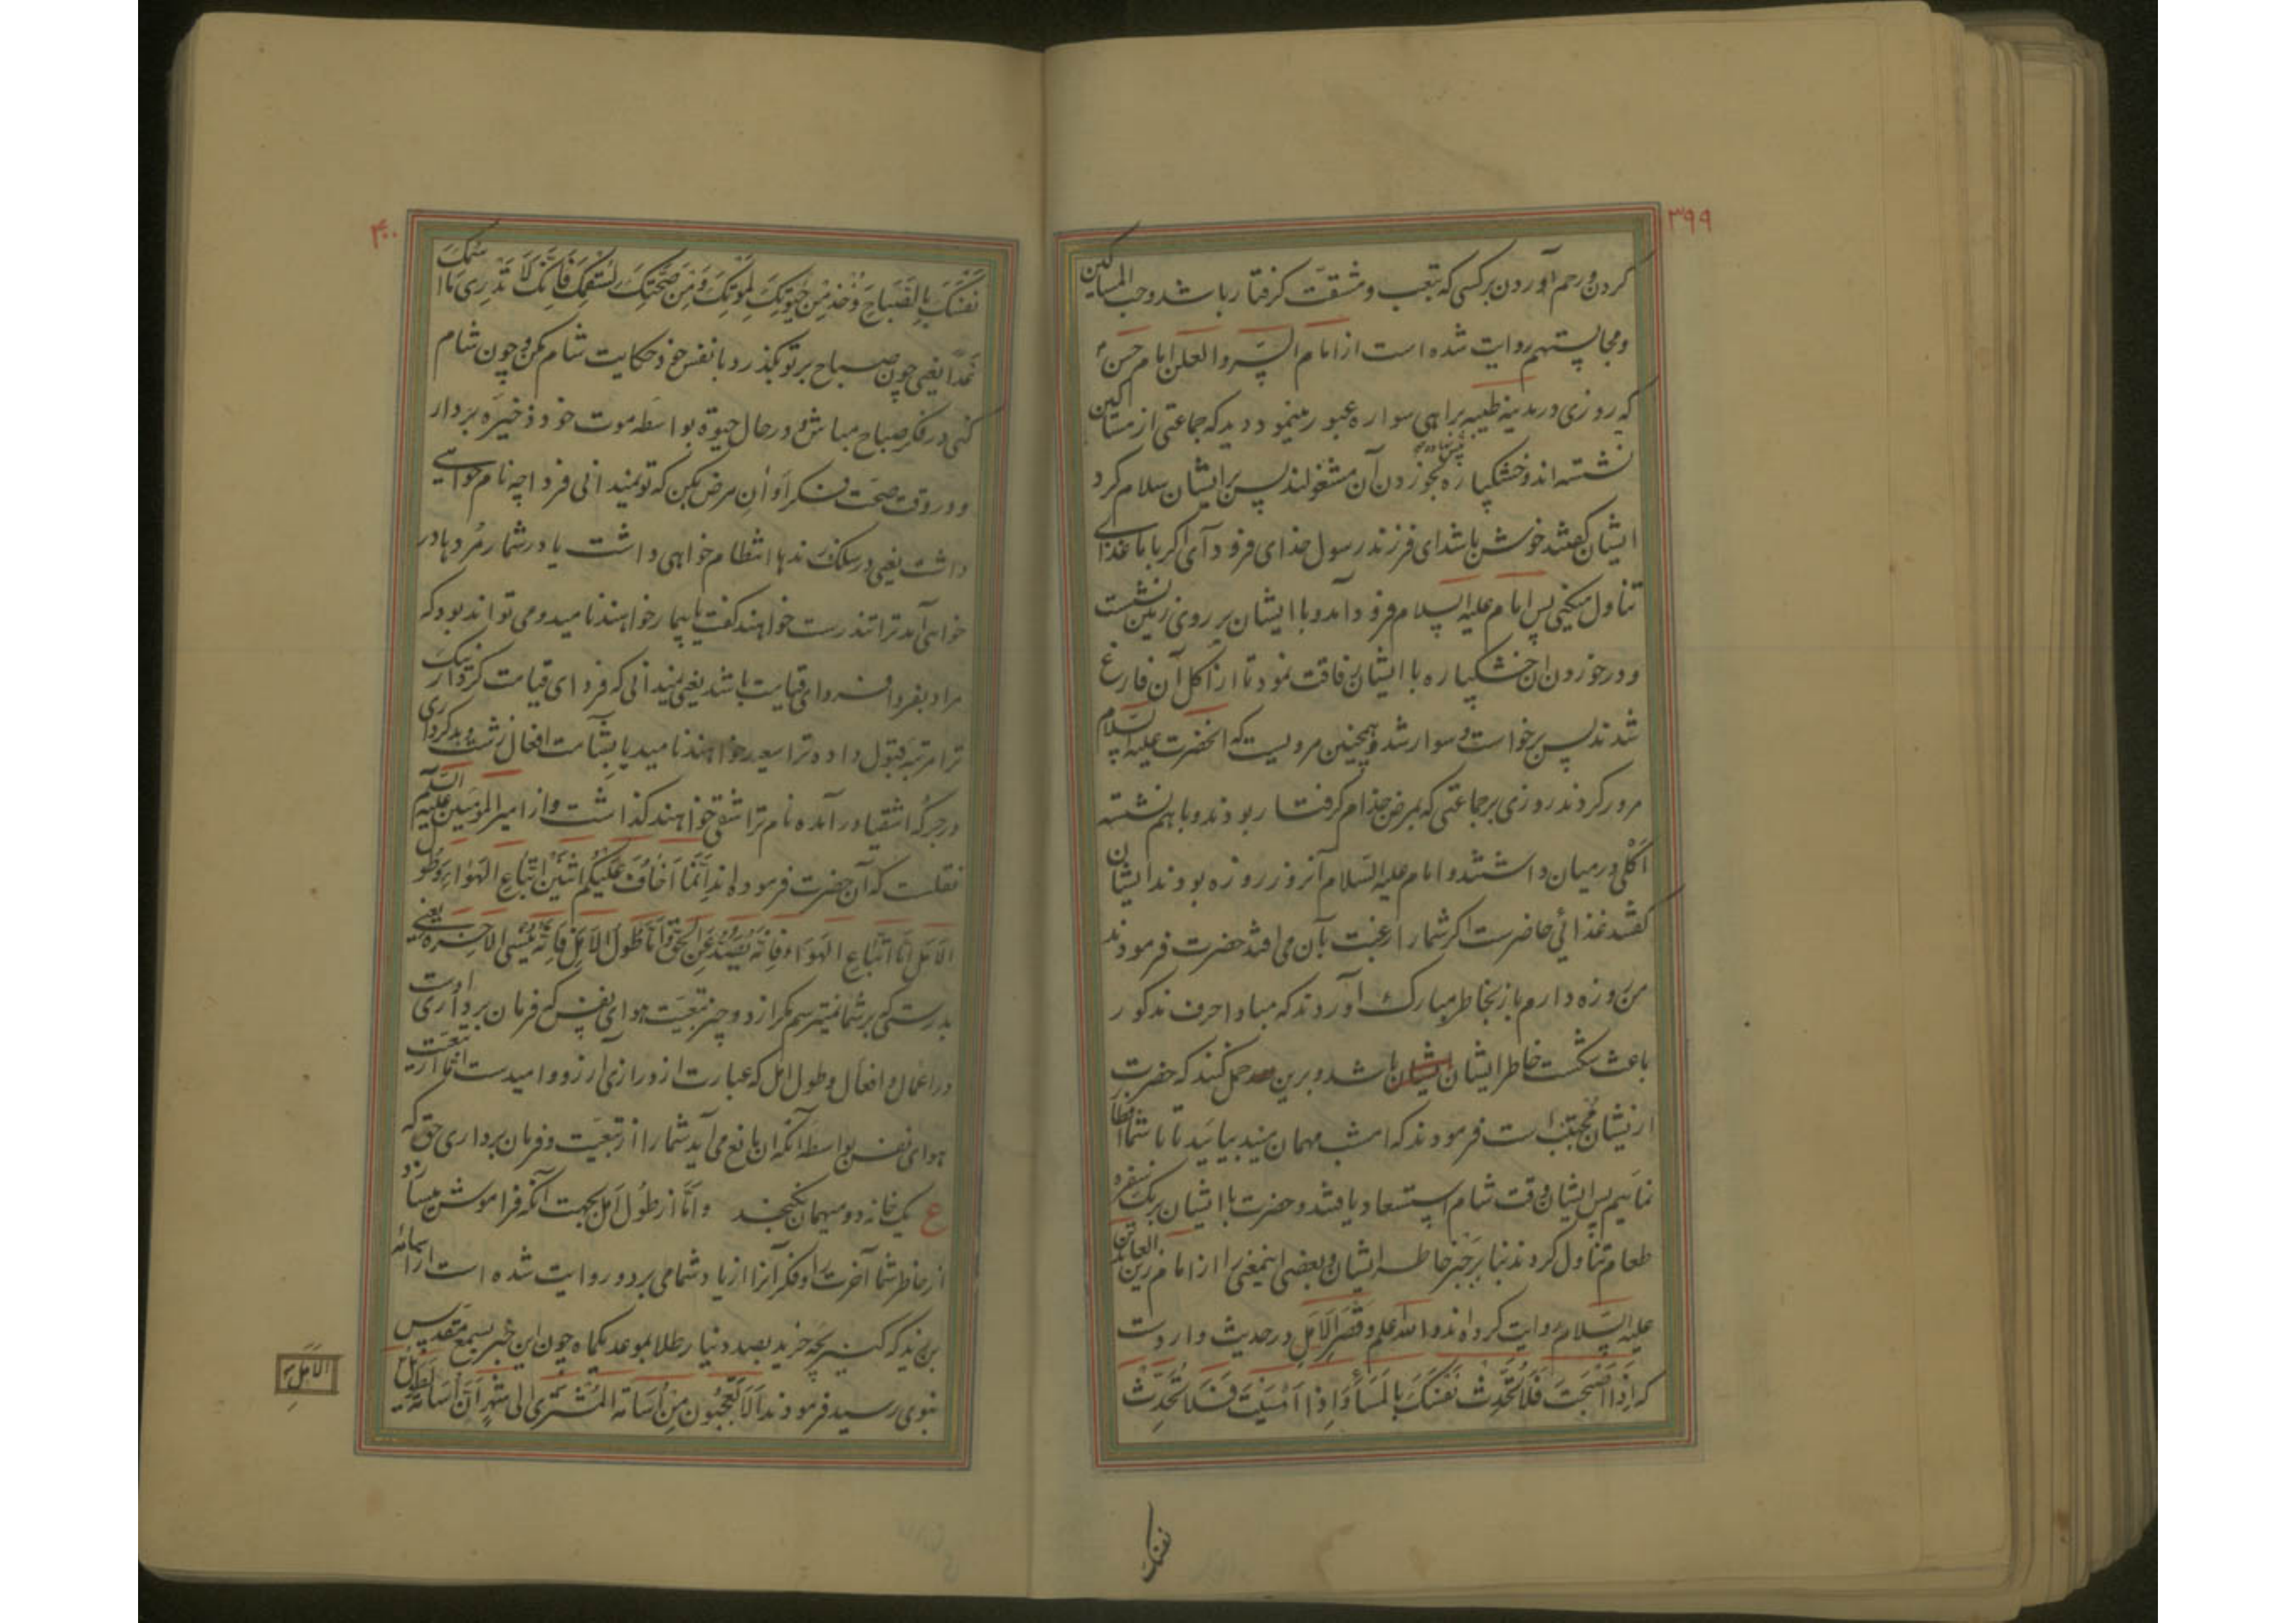 ۳۹۹
کردن و رحم آوردن بر کسی که بتعب و مشقت گرفتار باشد و حب المساکین
و مجالستهم روایت شده است از امام السر و العلن امام حسن ع
که روزی در مدینه طیبه براهی سواره عبور مینمود دید که جماعتی از مساکین
نشسته اند و خشکپاره بخوردن آن مشغولند پس بر ایشان سلام کرد
ایشان گفتند خوش باشد ای فرزند رسول خدای فرود آی اگر با ما غذای
تناول میکنی پس امام علیه السلام فرود آمد و با ایشان بر روی زمین نشست
و در خوردن ان خشکپاره با ایشان رفاقت نمود تا از اکل آن فارغ
شدند پس برخواست و سوار شد و همچنین مرویست که انحضرت علیه السلام
مرور کردند روزی بر جماعتی که بمرض جذام گرفتار بودند و با هم نشسته
اکلی در میان داشتند و امام علیه السلام آنروز روزه بودند ایشان
گفتند غذائی حاضرست اگر شما را رغبت بآن می افتد حضرت فرمودند
من روزه دارم باز بخاطر مبارک آوردند که مبادا حرف مذکور
باعث شکست خاطر ایشان ایشان باشد و برین حمل کنند که حضرت
از ایشان مجتنب است فرمودند که امشب مهمان منید بیائید تا با شما افطار
نمائیم پس ایشان وقت شام استسعاد یافتند و حضرت با ایشان بر یک سفره
طعام تناول کردند بنا بر جبر خاطر ایشان و بعضی اینمعنی را از امام زین العابدین
علیه السلام روایت کرده اند و الله اعلم و قصر الامل در حدیث واردست
که اذا اصبحت فلا تحدث نفسک بالمساء و اذا امسیت فلا تحدث
نفسک
۴۰۰
نفسک بالصباح و خذ من حیوتک لموتک و من صحتک لسقمک فانک لا تدری ما اسمک
غدا یعنی چون صباح بر تو بگذرد با نفس خود حکایت شام مکن و چون شام
کنی در فکر صباح مباش و در حال حیوة بواسطه موت خود ذخیره بردار
و در وقت صحت فکر اوان مرض بکن که تو نمیدانی فردا چه نام خواهی
داشت یعنی در سلک زنده ها انتظام خواهی داشت یا در شمار مرده ها در
خواهی آمد ترا تندرست خواهند گفت یا بیمار خواهند نامید و می تواند بود که
مراد بفردا فردای قیامت باشد یعنی نمیدانی که فردای قیامت کردار نیک
ترا مرتبه قبول داده ترا سعید خواهند نامید یا بشآمت افعال زشت و بدکرداری
در جرگه اشقیا در آمده نام ترا شقی خواهند گذاشت و از امیر المؤمنین علیه السلم
نقلست که آن حضرت فرموده اند انما اخاف علیکم اثنین اتباع الهواء و طول
الامل اما اتباع الهواء فانه یصد عن الحق و اما طول الامل فانه ینسی الاخرة یعنی
بدرستی که بر شما نمیترسم مگر از دو چیز تبعیت هوای نفس که فرمان برداری اوست
در اعمال و افعال و طول امل که عبارت از درازی ارزو و امیدست اما از تبعیت
هوای نفس بواسطه آنکه ان مانع می آید شما را از تبعیت و فرمان برداری حق که
ع یک خانه دو میهمان نگنجد و اما از طول امل بجهت آنکه فراموش میسازد
از خاطر شما آخرت را و فکر آنرا از یاد شما می برد و روایت شده است از اسامة
بن زید که کنیز بچه خرید بصد دینار طلا بموعد یکماه چون این خبر بسمع مقدس
نبوی رسید فرمودند الا تعجبون من اسامة المشتری الی شهر ان اسامة لطویل
الامل